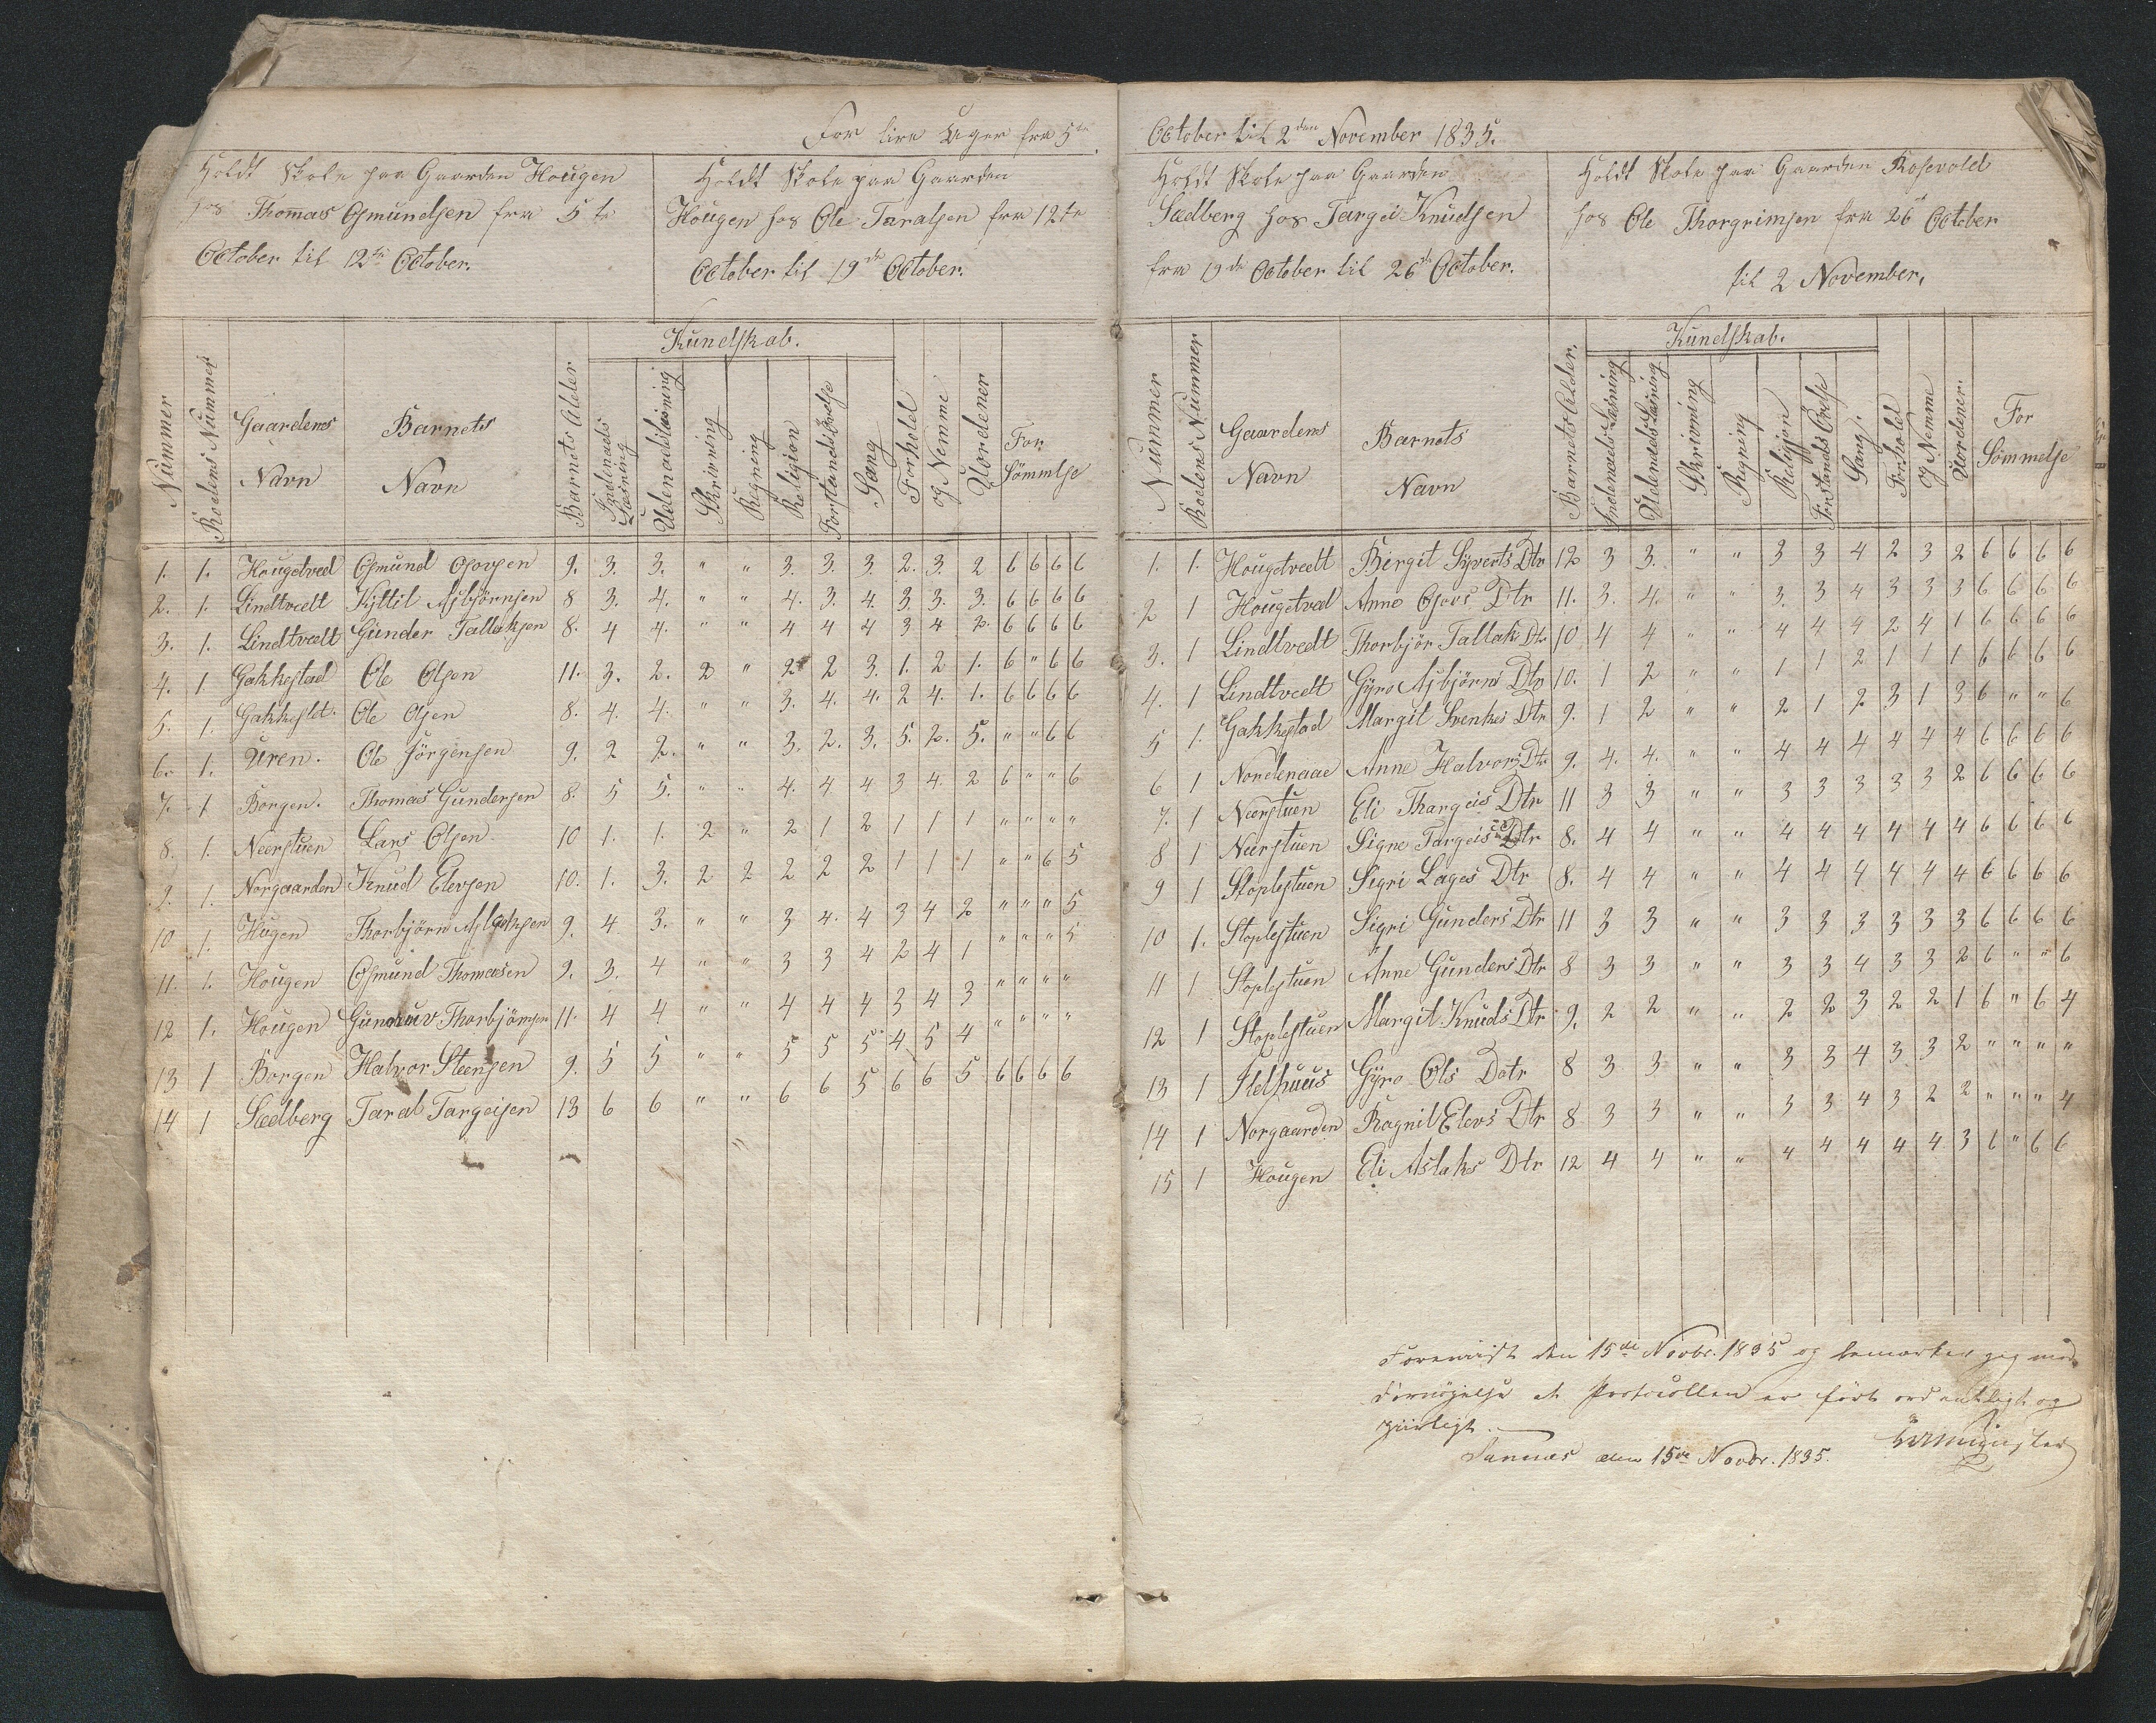 For fire Uger fra 5te
Holdt Skole paa Gaarden Hougen
hos Thomas Osmundsen fra 5te
October til 12te October.
Holdt Skole paa Gaarden
Hougen hos Ole Taralsen fra 12te
October til 19de October.
Nummer Roedens Nummer Gaardens Navn Barnets Navn Barnets Alder Kundskab. Indenads Læsning Udenadslæsning Skrivning Regning Religion Forstands Øvelse Sang Forhold og Nemme Uordener For Sömmelse
1. 1. Hougetved Osmund Osovsen 9. 3. 3. " " 3. 3. 3. 2. 3. 2 6 6 6 6
2. 1. Lindtvedt Kjttil Asbjörnsen 8 3. 4. " " 4. 3. 4. 3. 3. 3. 6 6 6 6
3. 1. Lindtvedt Gunder Tallaksen 8. 4 4. " " 4 4 4 3 4 2. 6 6 6 6
4. 1 Gakkestad Ole Olsen 11. 3. 2. 2 " 2 2 3. 1. 2 1. 6 " 6 6
5. 1. Gakkestd. Ole Olsen 8. 4. 4. " " 3. 4. 4. 2 4. 1. 6 6 6 6
6. 1. Uren. Ole Jörgensen 9. 2 2. " " 3. 2. 3. 5. 2. 5. " " 6 6
7. 1 Borgen. Thomas Gundersen 8. 5 5. " " 4. 4. 4 3 4. 2 6 " " 6
8. 1. Neerstuen Lars Olsen 10 1. 1. 2 " 2 1 2 1 1 1 " " " "
9. 1. Norgaarden Knud Elevsen 10. 1. 3. 2 2 2 2 2 1 1 1 " " 6 5
10 1. Hugen Thorbjörn Aslaksen 9. 4 3. " " 3 4. 4 3 4 2 " " " 5
11. 1. Hougen Osmund Thomasen 9. 3. 4 " " 3 3 4 2 4 1 " " " 5
12 1. Hougen Gunduv Thorbjörnsen 11. 4 4 " " 4 4 4 3 4 3 " " " "
13 1 Borgen Halvor Steensen 9. 5 5 " " 5 5 5 4 5 4 " " " "
14 1 Sædberg Taral Targeisen 13 6 6 " " 6 6 5 6 6 5 6 6 6 6
October til 2den November 1835.
Holdt Skole paa Gaarden
Sædberg hos Targei Knudsen
fra 19de October til 26de October.
Holdt Skole paa Gaarden Rosevold
hos Ole Thorgrimsen fra 26de October
til 2 November,
Nummer Roedens Nummer Gaardens Navn Barnets Navn Barnets Alder. Kundskab. Indenads Læsning Udendads Læsning Skrivning Regning Religjon Forstands Övelse Sang. Forhold og Nemme Uordener. For Sömmelse
1. 1. Hougetvedt Birgit Syverts Dtr 12 3 3. " " 3 3 4 2 3 2 6 6 6 6
2 1 Hougetved Anne Osovs Dtr 11. 3. 4. " " 3. 3 4 3 3 3 6 6 6 6
3. 1 Lindtvedt Thorbjör Tallak Dtr 10 4 4 " " 4 4 4 2 4 1 6 6 6 6
4. 1 Lindtvedt Gyro Asbjörns Dtr 10. 1 2 " " 1 1 2 1 1 1 6 6 6 6
5 1. Gakkestad Margit Svenkes Dtr 9. 1 2 " " 2 1 2 3 1 3 6 " " 6
6 1 Nordenaae Anne Halvors Dtr 9. 4. 4. " " 4 4 4 4 4 4 6 6 6 6
7. 1 Neerstuen Eli Thargeis Dtr 11 3 3 " " 3 3 3 3 3 2 6 6 6 6
8 1 Neerstuen Signe Targeis Dtr 8. 4 4 " " 4 4 4 4 4 4 6 6 6 6
9 1 Stoplestuen Sigri Lages Dtr 8. 4 4 " " 4 4 4 4 4 4 6 6 6 6
10 1. Stoplestuen Sigri Gunders Dtr 11 3 3 " " 3 3 3 3 3 3 6 6 6 6
11 1 Stoplestuen Anne Gunders Dtr 8 3 3 " " 3 3 4 3 3 2 6 " " 6
12 1 Stoplestuen Margit Knuds Dtr 9. 2 2 " " 2 2 3 2 2 1 6 " 6 4
13 1 Ildhuus Gyro Ols Datr 8 3 3 " " 3 3 4 3 3 2 " " " "
14 1 Norgaarden Ragnil Elevs Dtr 8 3 3 " " 3 3 4 3 2 2 " " " 4
15 1 Hougen Eli Aslaks Dtr 12 4 4 " " 4 4 4 4 4 3 6 " 6 6
Foreviist den 15de Novbr. 1835 og bemærker jeg med
Fornöjelse at Protocollen er fört ordentligt og
ziirligt.
Sannes den 15de Novbr. 1835.